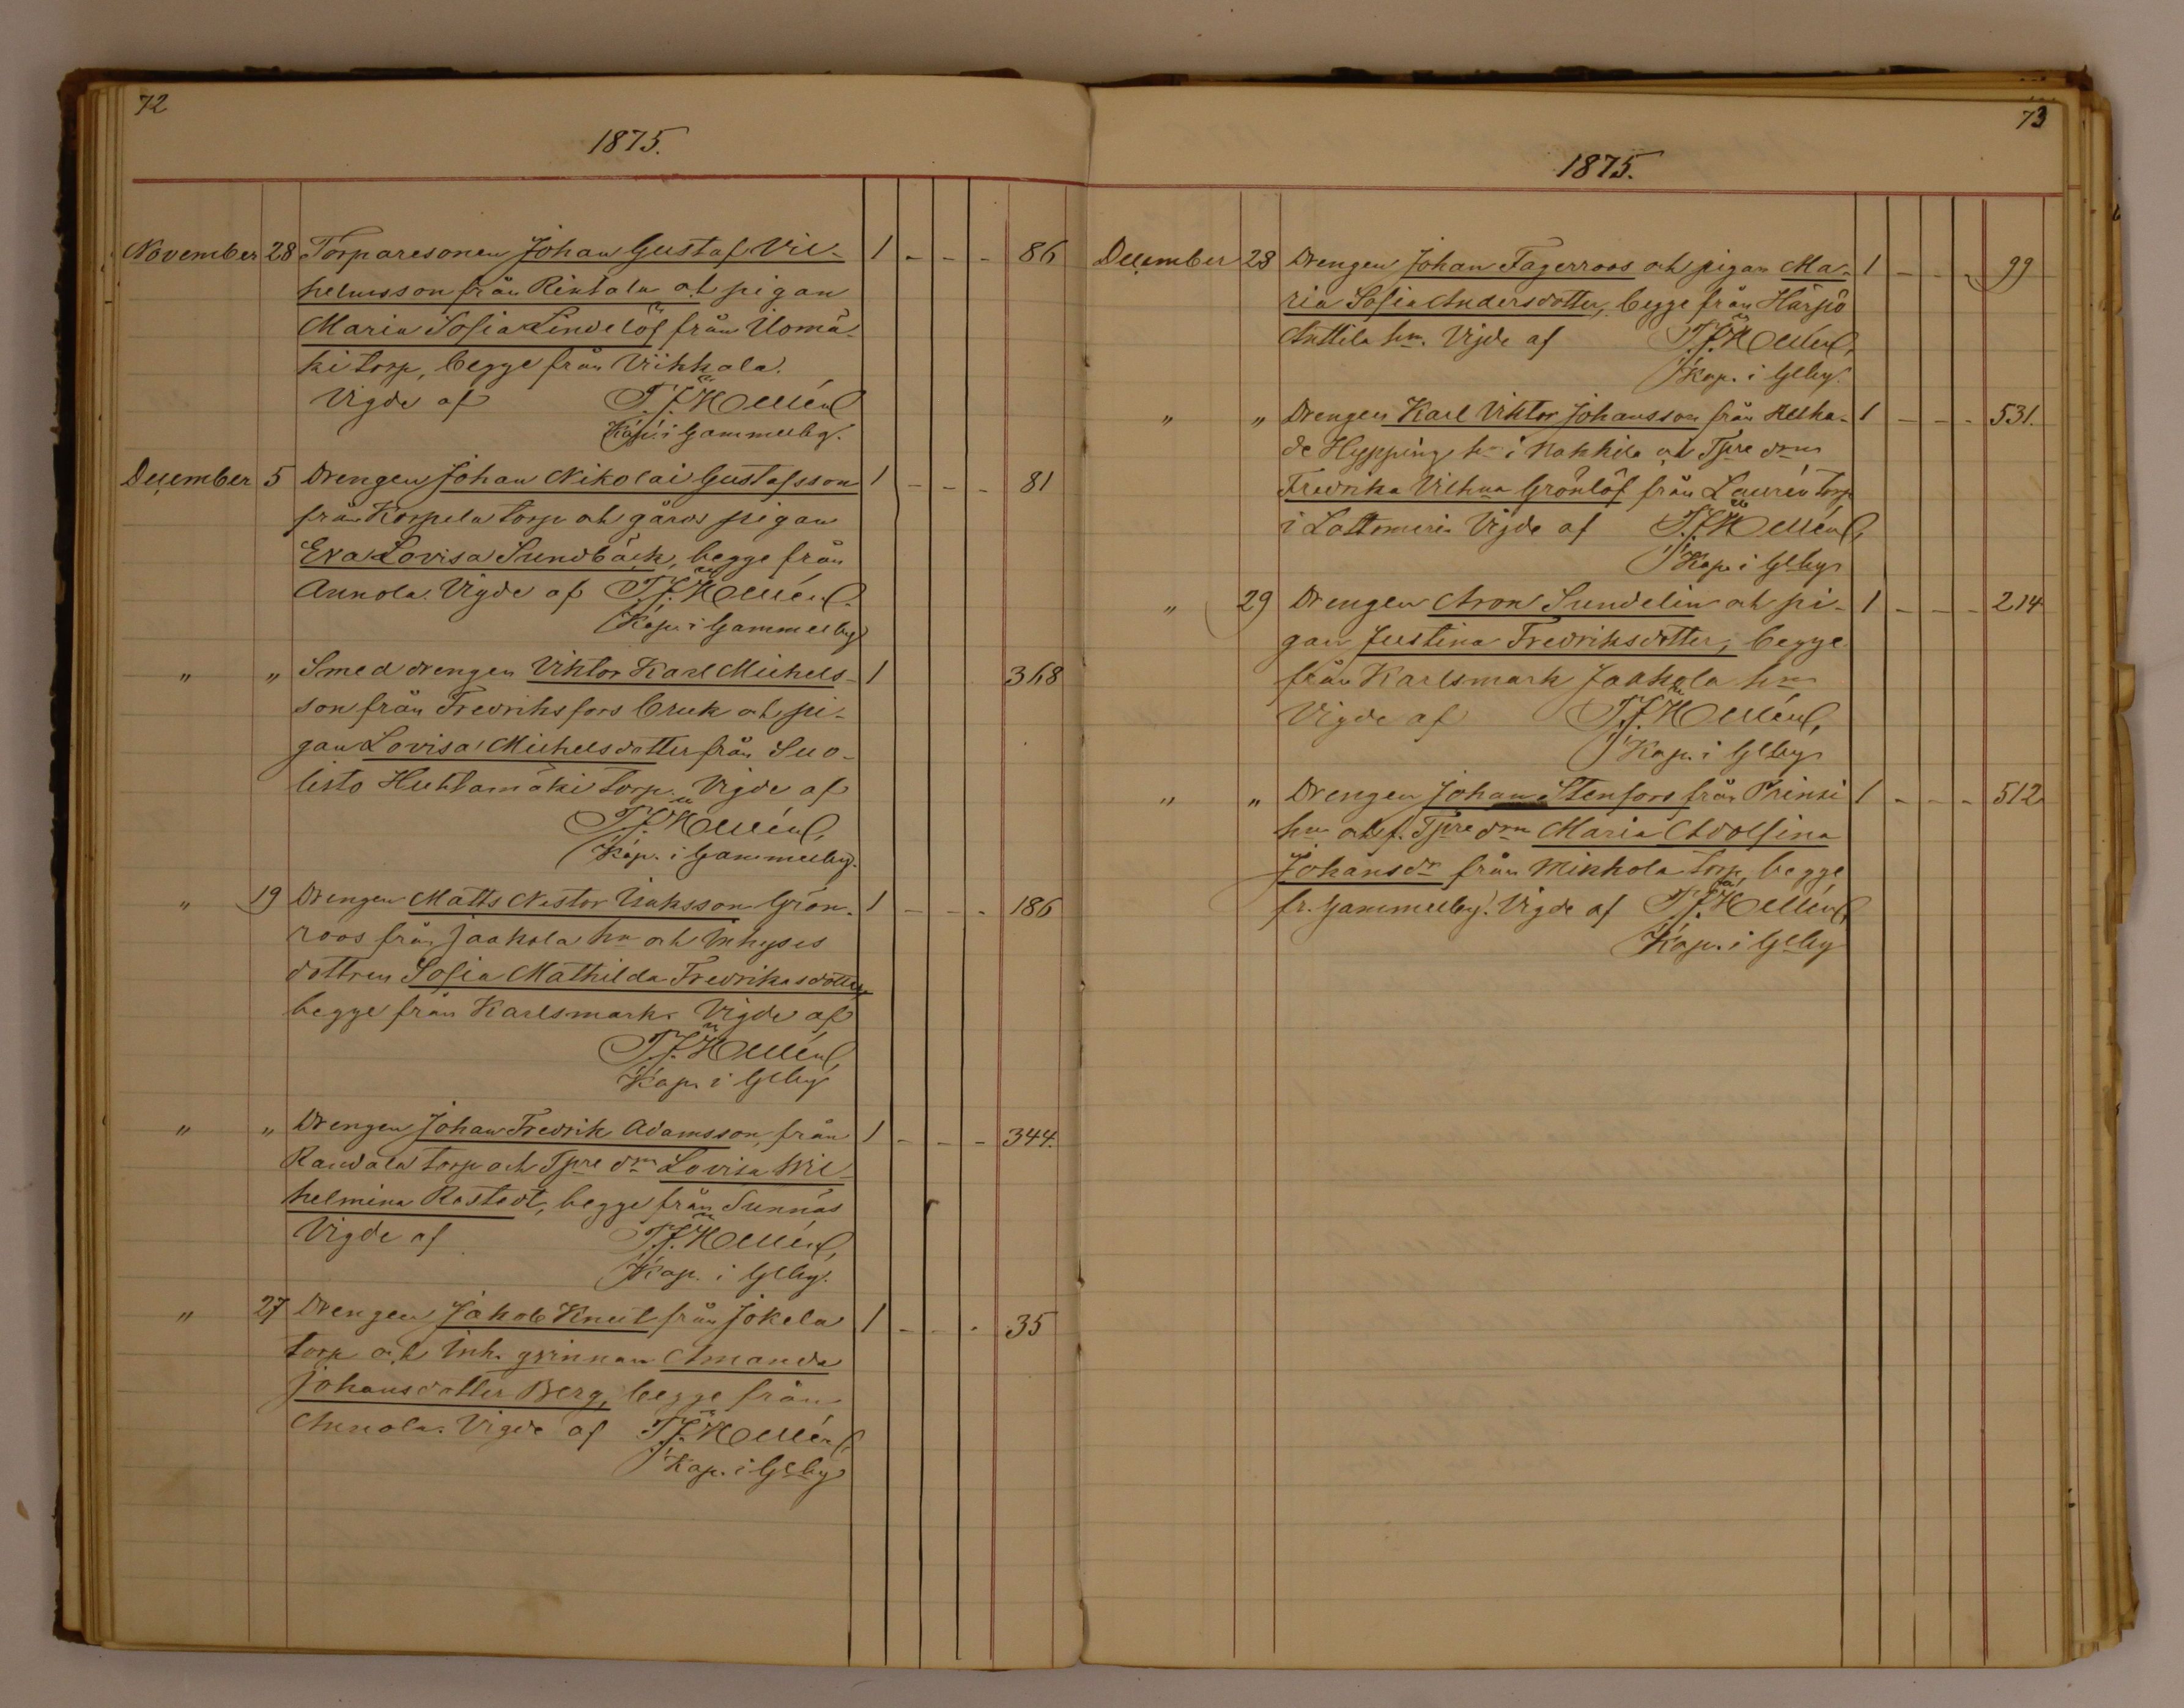 72
1875.
November 28 Torparesonen Johan Gustaf Vil- 1 - - - 86
helmsson från Rintala och pigan
Maria Sofia Lindelöf från Uomä-
ki torp, begge från Viikkala.
Vigde af T. J. Hellén
Kap. i Gammelby.
December 5 Drengen Johan Nikolai Gustafsson 1 - - - 81
från Korpela torp och gårds pigan
Eva Lovisa Sundbäck, begge från
Annola. Vigde af T. J. Hellén
Kap. i Gammelby
" " Smeddrengen Viktor Karl Michels- 1 368
son från Fredriksfors bruk och pi-
gan Lovisa Michelsdotter från Suo-
listo Huhtamäki torp. Vigde af
T. J. Hellén,
Kap. i Gammelby.
" 19 Drengen Matts Nestor Isaksson Grön- 1 - - - 186
roos från Jaakola hn och Inhyses
dottren Sofia Mathilda Fredrikasdotter
begge från Karlsmark. Vigde af
T. J. Hellén,
Kap. i Glby
" " Drengen Johan Fredrik Adamsson, från 1 - - - 344.
Randala torp och Tpre drn Lovisa Wil-
helmina Rostedt, begge från Sunnäs
Vigde af T. J. Hellén,
Kap. i Glby.
" 27 Drengen Jakob Knut från Jokela 1 - - - 35
torp och Inh. qvinnan Amanda
Johansdotter Berg, begge från
Annola. Vigde af T. J. Hellén
Kap. i Glby
73
1875.
December 28 Drengen Johan Fagerroos och pigan Ma- 1 - - - 99
ria Sofia Andersdotter, begge från Harjo
Anttila hn. Vigde af T. J. Hellén,
Kap. i Glby.
" " Drengen Karl Viktor Johansson från 1 - - - 531.
de Hypping hn i Nakkila och Tpre drn
Fredrika Vilhna Grönlöf från Laurén torp
i Lattomeri. Vigde af T. J. Hellén,
Kap. i Glby
" 29 Drengen Aron Sundelin och pi- 1 - - - 214
gan Justina Fredriksdotter, begge
från Karlsmark Jaakola hn
Vigde af T. J. Hellén,
Kap. i Glby
" " Drengen Johan Stenfors från Prinsi 1 - - - 512
hn och f. Tpre drn Maria Adolfina
Johansdr från Mikkola torp, begge
fr. Gammelby. Vigde af T. J. Hellén,
Kap. i Glby